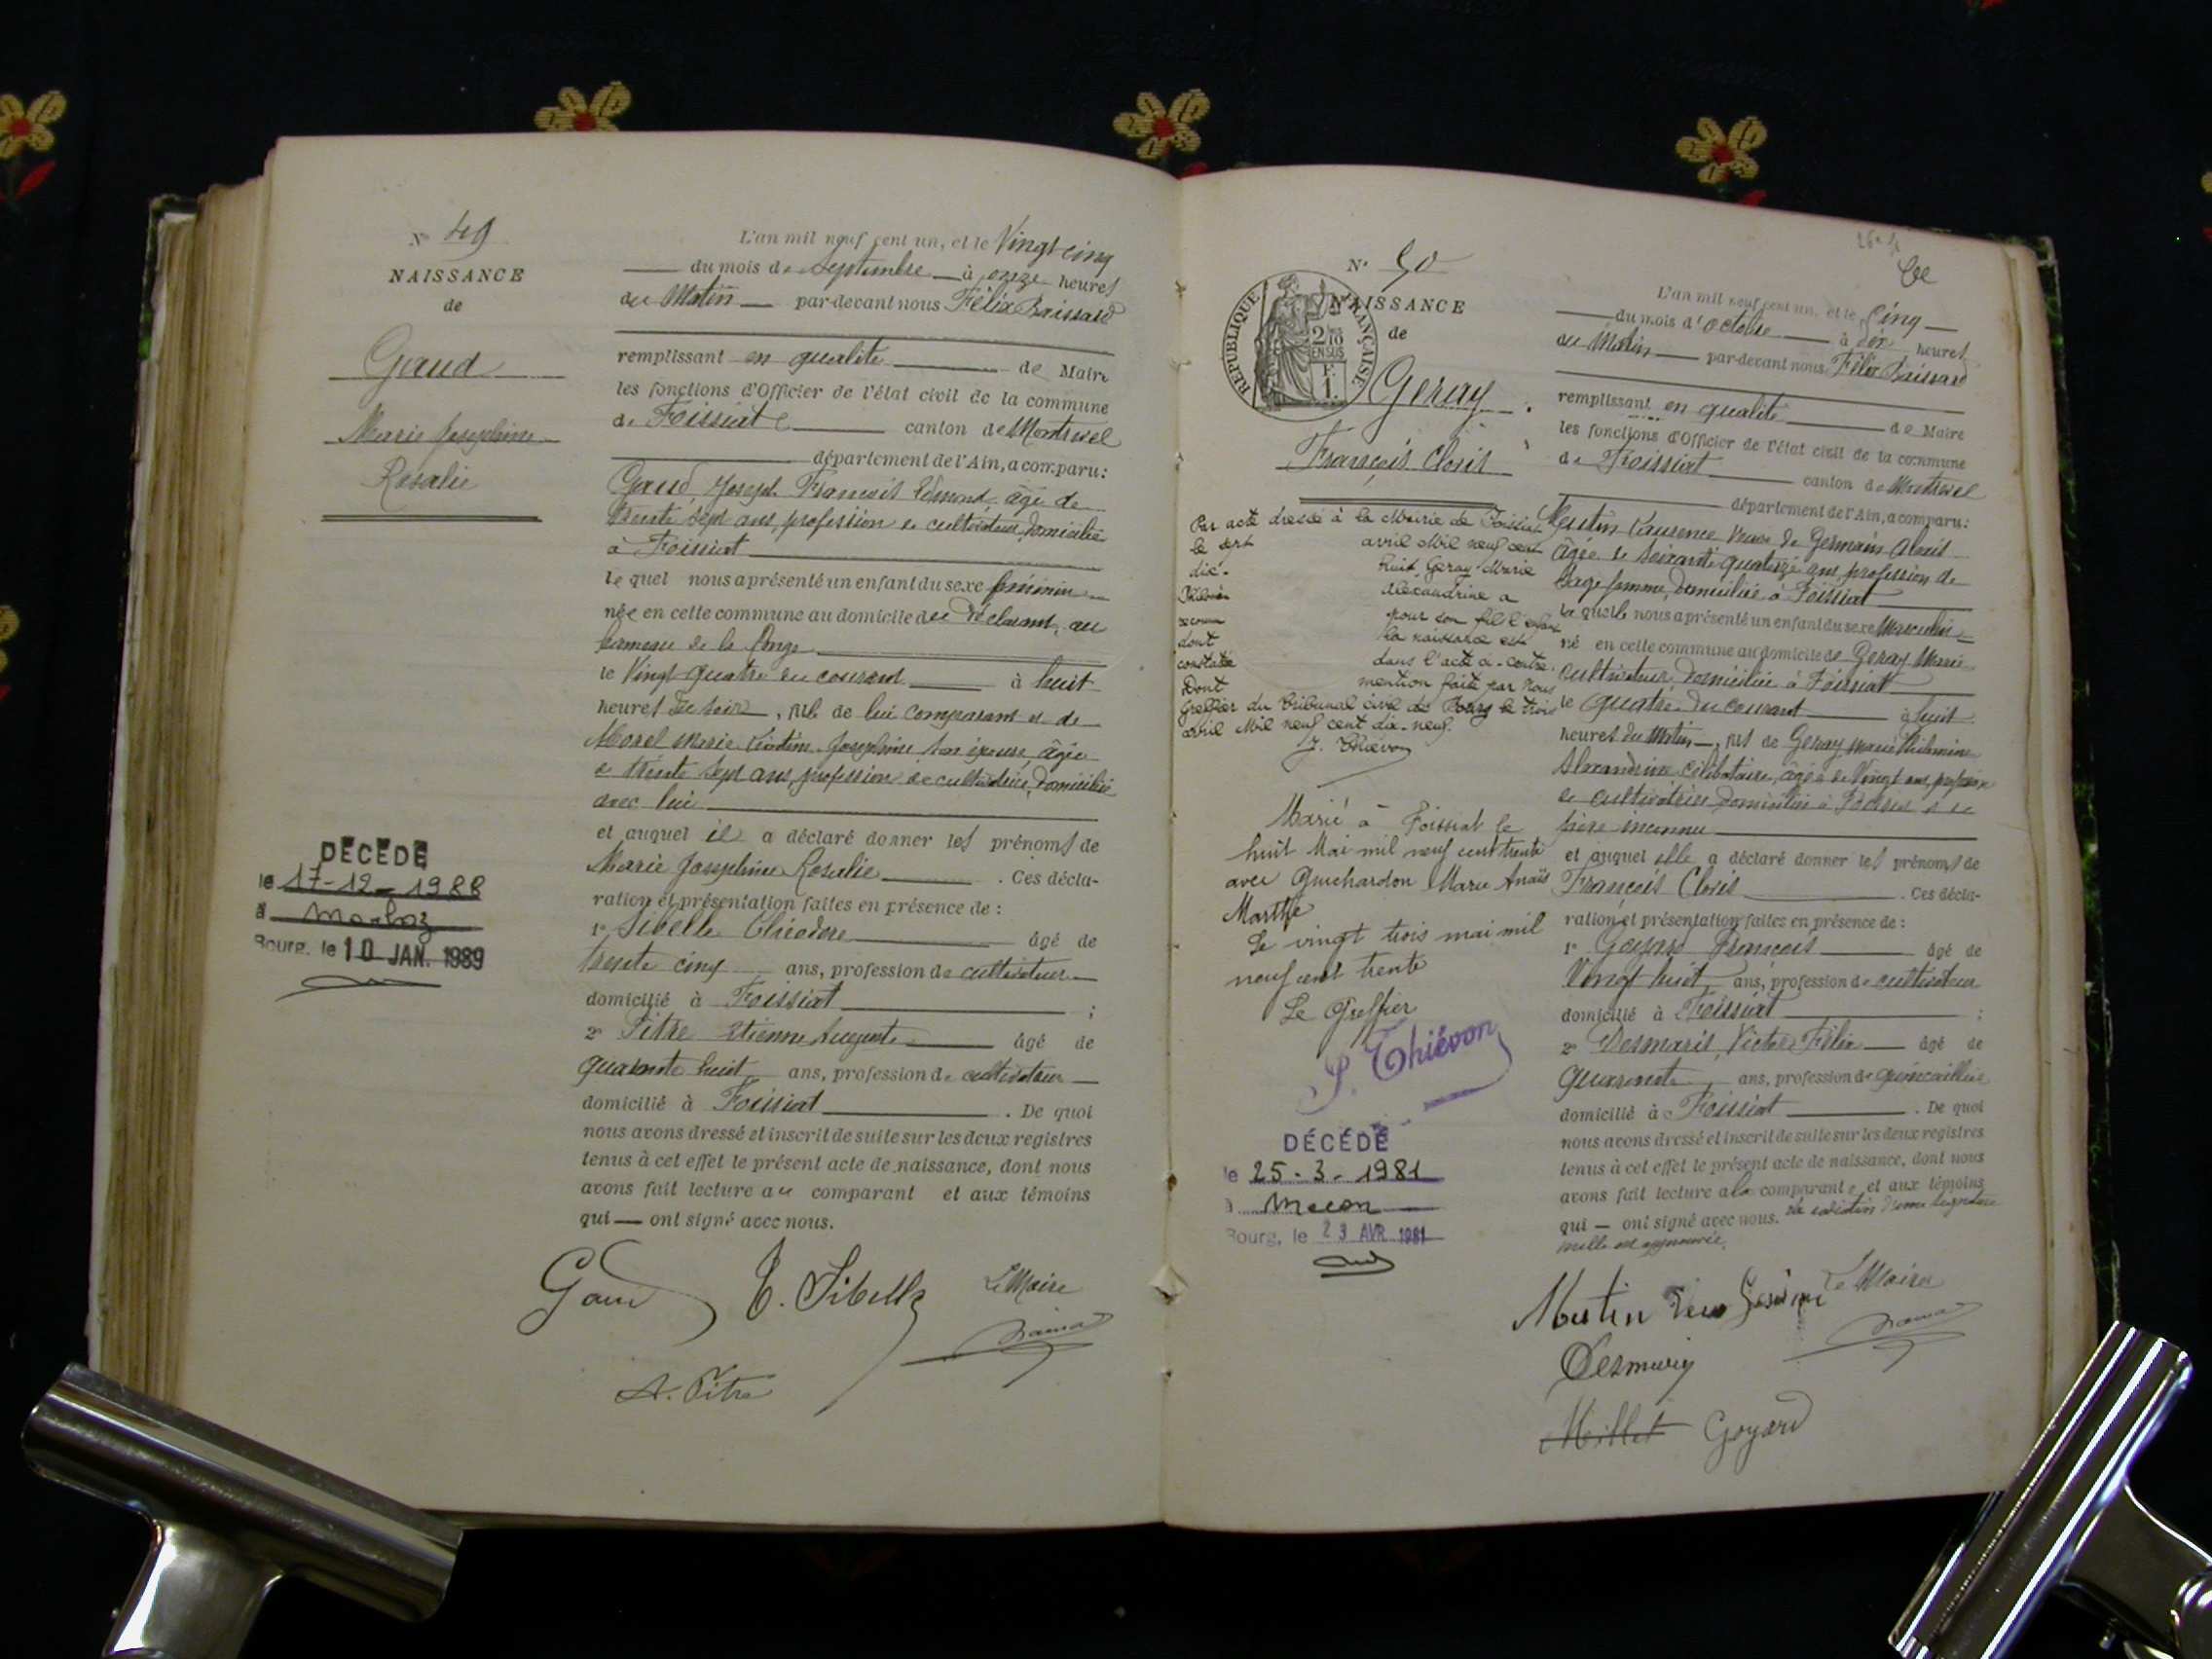 N° 49
NAISSANCE
de
Gaud
Marie Joséphine
Rosalie
DÉCÉDÉ
le 17-12-1988
à Marboz
Bourg, le 10 JAN. 1989
L'an mil neuf cent un, et le Vingt cinq
du mois de Septembre à onze heures
du Matin par-devant nous Félix
remplissant en qualité de Maire
les fonctions d'Officier de l'état civil de la commune
de Foissiat canton de Montrevel
département de l'Ain, a comparu:
Gaud, Joseph François Edmond âgé de
trente sept ans, profession de cultivateur, domicilié
à Foissiat
le quel nous a présenté un enfant du sexe féminin
née en cette commune au domicile du déclarant, au
hameau de la
le Vingt quatre du courant à huit
heures du soir, fille de lui comparant et de
Morel Marie Joséphine son épouse, âgée
de trente sept ans, profession de cultivatrice, domiciliée
avec lui
et auquel il a déclaré donner les prénoms de
Marie Joséphine Rosalie. Ces décla-
ration et présentation faites en présence de :
1° Sibelle Théodore âgé de
trente cinq ans, profession de cultivateur
domicilié à Foissiat ;
2° Pitre Etienne Auguste âgé de
quarante huit ans, profession de cultivateur
domicilié à Foissiat. De quoi
nous avons dressé et inscrit de suite sur les deux registres
tenus à cet effet le présent acte de naissance, dont nous
avons fait lecture au comparant et aux témoins
qui — ont signé avec nous.
Gaud T. Sibelle Le Maire
A. Pitre
N° 50
RÉPUBLIQUE FRANÇAISE
2/10 EN SUS
1 F.
NAISSANCE
de
Geray
François Cloris
Par acte dressé à la Mairie de Foissiat
le sept avril Mil neuf cent
dix-huit Geray Marie
Philomène Alexandrine a
reconnu pour son fils l'enfant
dont la naissance est
constatée dans l'acte ci-contre.
Dont mention faite par Nous
Greffier du Tribunal civil de Bourg le trois
avril Mil neuf cent dix-neuf.
J. Thiévon
Marié à Foissiat le
huit Mai mil neuf cent trente
avec Guichardon Marie Anaïs
Marthe
Le vingt trois mai mil
neuf cent trente
Le Greffier
J. Thiévon
DÉCÉDÉ
le 25-3-1981
à Macon
Bourg, le 23 AVR. 1981
L'an mil neuf cent un, et le Cinq
du mois d'Octobre à dix heures
du Matin par-devant nous Félix
remplissant en qualité de Maire
les fonctions d'Officier de l'état civil de la commune
de Foissiat canton de Montrevel
département de l'Ain, a comparu:
Laurence Veuve de Germain Alexis
âgée de soixante quatorze ans, profession de
sage femme, domiciliée à Foissiat
la quelle nous a présenté un enfant du sexe Masculin
né en cette commune au domicile de Geray Marie
cultivateur, domicilié à Foissiat
le quatre du courant à huit
heures du Matin, fils de Geray Marie Philomène
Alexandrine, célibataire, âgée de Vingt ans, profession
de cultivatrice domiciliée à Foissiat et de
père inconnu
et auquel elle a déclaré donner les prénoms de
François Cloris. Ces décla-
ration et présentation faites en présence de :
1° Goyard François âgé de
Vingt huit ans, profession de cultivateur
domicilié à Foissiat ;
2° Desmaris, Victor Félix âgé de
quarante ans, profession de quincaillier
domicilié à Foissiat. De quoi
nous avons dressé et inscrit de suite sur les deux registres
tenus à cet effet le présent acte de naissance, dont nous
avons fait lecture à la comparante et aux témoins
qui — ont signé avec nous. La radiation d'une signature
nulle est approuvée.
Le Maire
Desmaris
Millet Goyard